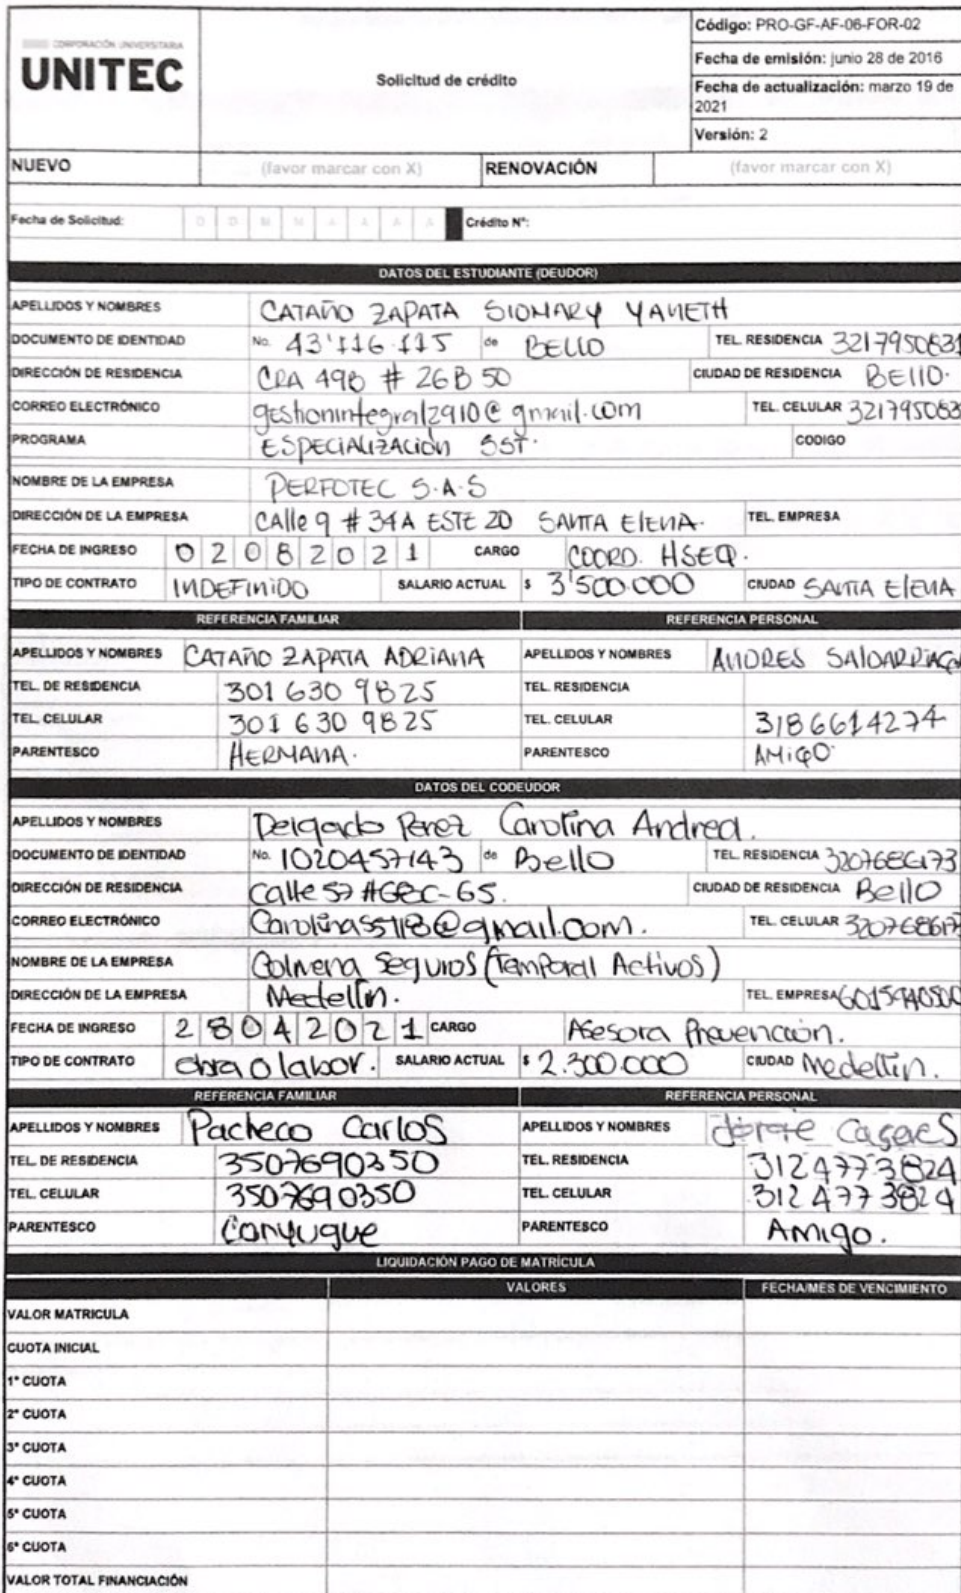 CORPORACIÓN UNIVERSITARIA
UNITEC
Solicitud de crédito
Código: PRO-GF-AF-06-FOR-02
Fecha de emisión: junio 28 de 2016
Fecha de actualización: marzo 19 de
2021
Versión: 2
NUEVO (favor marcar con X) RENOVACIÓN (favor marcar con X)
Fecha de Solicitud: D D M M A A A A Crédito N°:
DATOS DEL ESTUDIANTE (DEUDOR)
APELLIDOS Y NOMBRES CATAÑO ZAPATA SIOMARY YANETH
DOCUMENTO DE IDENTIDAD No. 43'116.115 de BELLO TEL. RESIDENCIA 3217950831
DIRECCIÓN DE RESIDENCIA CRA 49B # 26B 50 CIUDAD DE RESIDENCIA BEllO.
CORREO ELECTRÓNICO gestionintegral2910@gmail.com TEL. CELULAR 321795083
PROGRAMA ESPECIALIZACIÓN SST. CODIGO
NOMBRE DE LA EMPRESA PERFOTEC S.A.S
DIRECCIÓN DE LA EMPRESA CAlle 9 # 34A ESTE 20 SANTA ElENA. TEL. EMPRESA
FECHA DE INGRESO 0 2 0 8 2 0 2 1 CARGO COORD. HSEQ.
TIPO DE CONTRATO INDEFINIDO SALARIO ACTUAL $ 3'500.000 CIUDAD SANTA ElENA
REFERENCIA FAMILIAR REFERENCIA PERSONAL
APELLIDOS Y NOMBRES CATAÑO ZAPATA ADRIANA APELLIDOS Y NOMBRES ANDRES SAlDARRIAGA
TEL. DE RESIDENCIA 301 630 9825 TEL. RESIDENCIA
TEL. CELULAR 301 630 9825 TEL. CELULAR 3186614274
PARENTESCO HERMANA. PARENTESCO AMIGO.
DATOS DEL CODEUDOR
APELLIDOS Y NOMBRES Delgado Perez Carolina Andrea.
DOCUMENTO DE IDENTIDAD No. 1020457143 de Bello TEL. RESIDENCIA 3207686173
DIRECCIÓN DE RESIDENCIA Calle 57 #GBC-65. CIUDAD DE RESIDENCIA Bello
CORREO ELECTRÓNICO Carolina5518@gmail.com. TEL. CELULAR 320768617
NOMBRE DE LA EMPRESA Colmena Seguros (Temporal Activos)
DIRECCIÓN DE LA EMPRESA Medellín. TEL. EMPRESA 6015940500
FECHA DE INGRESO 2 8 0 4 2 0 2 1 CARGO Asesora Prevención.
TIPO DE CONTRATO obra o labor. SALARIO ACTUAL $ 2.300.000 CIUDAD Medellín.
REFERENCIA FAMILIAR REFERENCIA PERSONAL
APELLIDOS Y NOMBRES Pacheco Carlos APELLIDOS Y NOMBRES Caseres
TEL. DE RESIDENCIA 3507690350 TEL. RESIDENCIA 3124773824
TEL. CELULAR 3507690350 TEL. CELULAR 3124773824
PARENTESCO Conyugue PARENTESCO Amigo.
LIQUIDACIÓN PAGO DE MATRÍCULA
VALORES FECHA/MES DE VENCIMIENTO
VALOR MATRICULA
CUOTA INICIAL
1° CUOTA
2° CUOTA
3° CUOTA
4° CUOTA
5° CUOTA
6° CUOTA
VALOR TOTAL FINANCIACIÓN